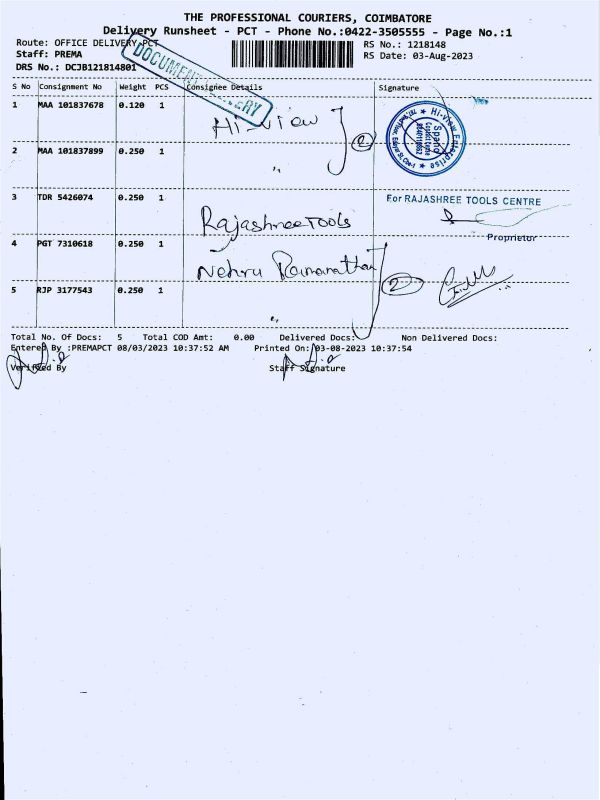 THE PROFESSIONAL COURIERS, COIMBATORE
Delivery Runsheet - PCT - Phone No.:0422-3505555 - Page No.:1
Route: OFFICE DELIVERY-PCT
RS No.: 1218148
Staff: PREMA
RS Date: 03-Aug-2023
DRS No.: DCJB121814801
DOCUMENT DELIVERY
S No Consignment No Weight PCS Consignee Details Signature
1 MAA 101837678 0.120 1 Hi-View
2 MAA 101837899 0.250 1 "
2
Hi-View Enterprise
3 TDR 5426074 0.250 1 Rajashree Tools
For RAJASHREE TOOLS CENTRE
Proprietor
4 PGT 7310618 0.250 1 Nehru Ramanathan
5 RJP 3177543 0.250 1 "
2
Total No. Of Docs: 5 Total COD Amt: 0.00 Delivered Docs: Non Delivered Docs:
Entered By :PREMAPCT 08/03/2023 10:37:52 AM Printed On:03-08-2023 10:37:54
Verified By Staff Signature